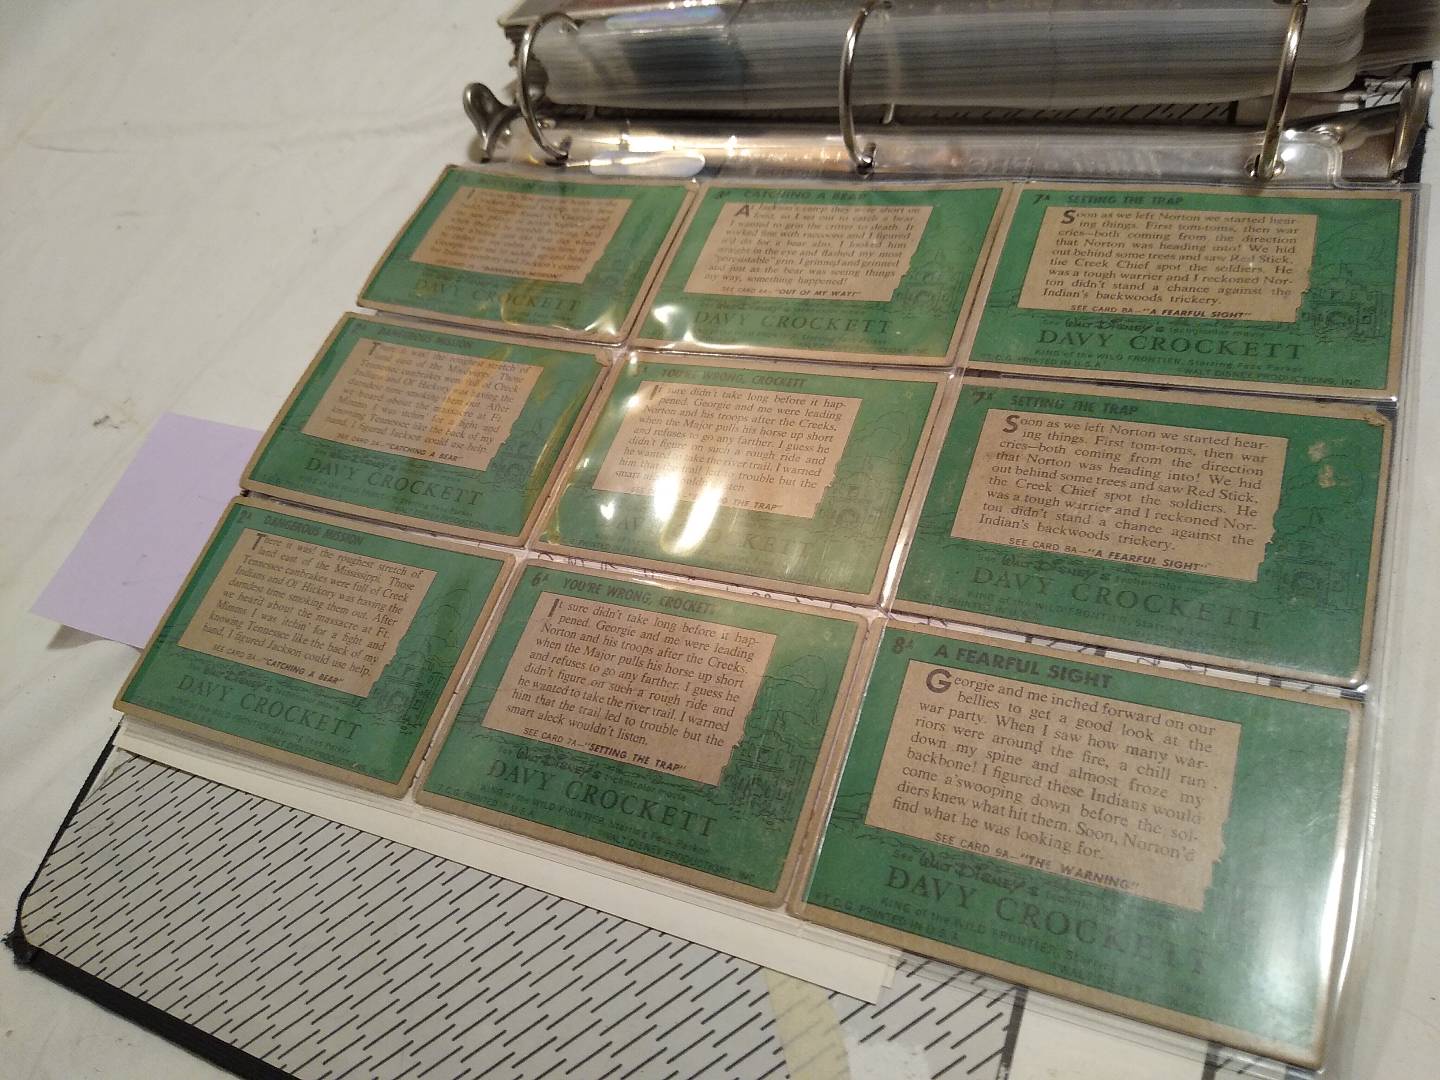 "DANGEROUS MISSION"
DAVY CROCKETT
3A CATCHING A BEAR
At Jackson's camp they were short on
food, so I set out to catch a bear.
I wanted to grin the critter to death. It
worked fine with raccoons and I figured
it'd do for a bear also. I looked him
square in the eye and flashed my most
grin. I grinned and grinned
and just as the bear was seeing things
my way, something happened!
SEE CARD 4A—"OUT OF MY WAY!"
DAVY CROCKETT
7A SETTING THE TRAP
Soon as we left Norton we started hear-
ing things. First tom-toms, then war
cries—both coming from the direction
that Norton was heading into! We hid
out behind some trees and saw Red Stick,
the Creek Chief spot the soldiers. He
was a tough warrior and I reckoned Nor-
ton didn't stand a chance against the
Indian's backwoods trickery.
SEE CARD 8A—"A FEARFUL SIGHT"
See Walt Disney's technicolor movie
DAVY CROCKETT
KING of the WILD FRONTIER, Starring Fess Parker
T.C.G. PRINTED IN U.S.A. ©WALT DISNEY PRODUCTIONS, INC.
2A DANGEROUS MISSION
There it was! the roughest stretch of
land east of the Mississippi. Those
Tennessee canbrakes were full of Creek
Indians and Ol' Hickory was having the
darndest time smoking them out. After
we heard about the massacre at Ft.
Mimms I was itchin' for a fight and
knowing Tennessee like the back of my
hand, I figured Jackson could use help.
SEE CARD 3A—"CATCHING A BEAR"
DAVY CROCKETT
YOU'RE WRONG, CROCKETT
It sure didn't take long before it hap-
pened. Georgie and me were leading
Norton and his troops after the Creeks,
when the Major pulls his horse up short
and refuses to go any farther. I guess he
didn't figure on such a rough ride and
he wanted to take the river trail. I warned
him that the trail led to trouble but the
smart aleck wouldn't listen.
SEE CARD 7A—"SETTING THE TRAP"
7A SETTING THE TRAP
Soon as we left Norton we started hear-
ing things. First tom-toms, then war
cries—both coming from the direction
that Norton was heading into! We hid
out behind some trees and saw Red Stick,
the Creek Chief spot the soldiers. He
was a tough warrior and I reckoned Nor-
ton didn't stand a chance against the
Indian's backwoods trickery.
SEE CARD 8A—"A FEARFUL SIGHT"
See Walt Disney's technicolor movie
DAVY CROCKETT
KING of the WILD FRONTIER
T.C.G. PRINTED IN U.S.A.
2A DANGEROUS MISSION
There it was! the roughest stretch of
land east of the Mississippi. Those
Tennessee canbrakes were full of Creek
Indians and Ol' Hickory was having the
darndest time smoking them out. After
we heard about the massacre at Ft.
Mimms I was itchin' for a fight and
knowing Tennessee like the back of my
hand, I figured Jackson could use help.
SEE CARD 3A—"CATCHING A BEAR"
See Walt Disney's technicolor movie
DAVY CROCKETT
KING of the WILD FRONTIER, Starring Fess Parker
©WALT DISNEY PRODUCTIONS, INC.
6A YOU'RE WRONG, CROCKETT
It sure didn't take long before it hap-
pened. Georgie and me were leading
Norton and his troops after the Creeks,
when the Major pulls his horse up short
and refuses to go any farther. I guess he
didn't figure on such a rough ride and
he wanted to take the river trail. I warned
him that the trail led to trouble but the
smart aleck wouldn't listen.
SEE CARD 7A—"SETTING THE TRAP"
See Walt Disney's technicolor movie
DAVY CROCKETT
KING of the WILD FRONTIER, Starring Fess Parker
T.C.G. PRINTED IN U.S.A. ©WALT DISNEY PRODUCTIONS, INC.
8A A FEARFUL SIGHT
Georgie and me inched forward on our
bellies to get a good look at the
war party. When I saw how many war-
riors were around the fire, a chill ran
down my spine and almost froze my
backbone! I figured these Indians would
come a'swooping down before the sol-
diers knew what hit them. Soon, Norton'd
find what he was looking for.
SEE CARD 9A—"THE WARNING"
See Walt Disney's technicolor
DAVY CROCKETT
KING of the WILD FRONTIER, Starring
T.C.G. PRINTED IN U.S.A. ©WALT DISNEY